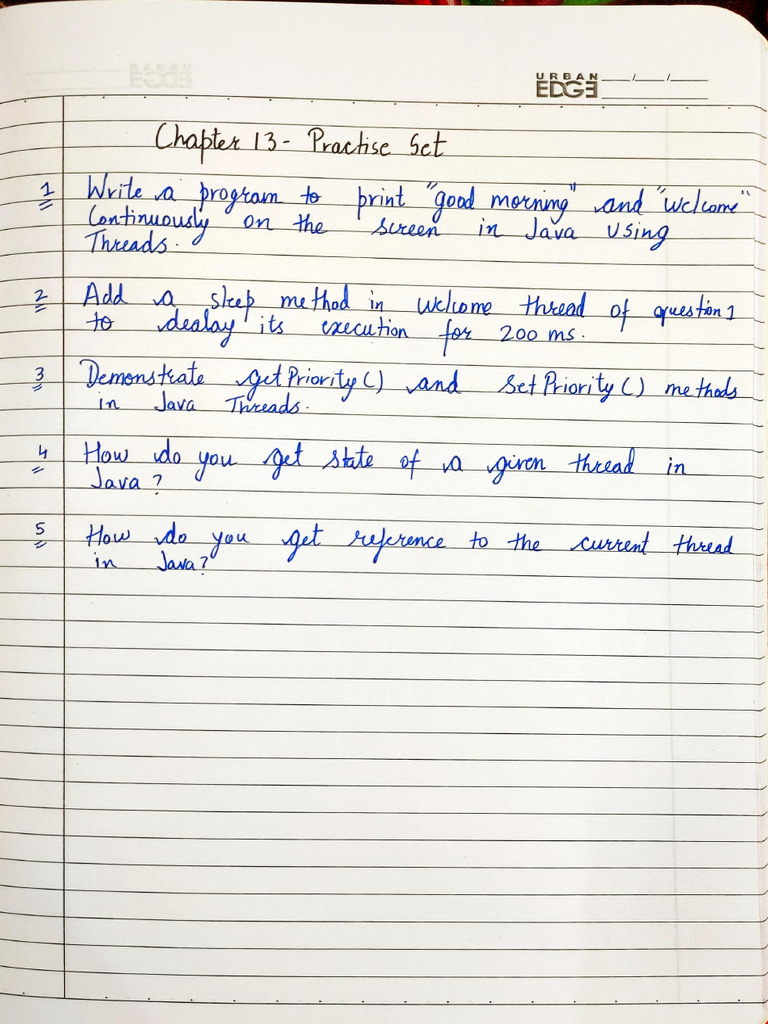 URBAN
EDGE
Chapter 13 - Practise Set
1 Write a program to print "good morning" and "welcome"
Continuously on the screen in Java using
Threads.
2 Add a sleep method in welcome thread of question 1
to dealay its execution for 200 ms.
3 Demonstrate getPriority() and setPriority() methods
in Java Threads.
4 How do you get state of a given thread in
Java?
5 How do you get reference to the current thread
in Java?